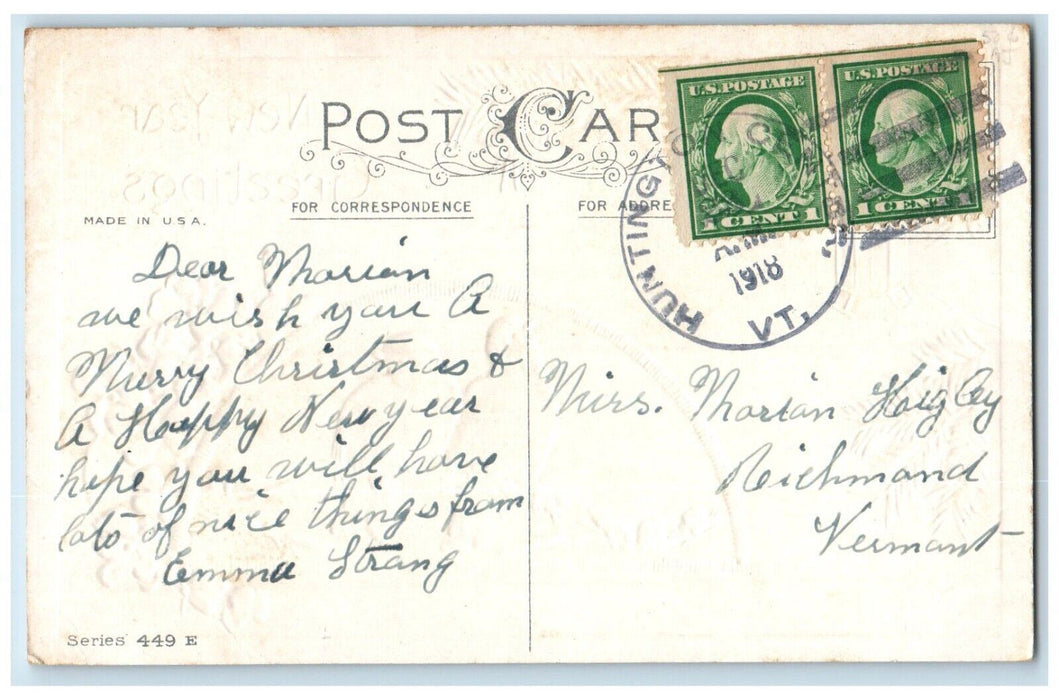 POST CAR
U.S. POSTAGE
U.S. POSTAGE
1 CENT 1
1 CENT 1
HUNTINGTON
1918
VT.
New Year
Greetings
FOR CORRESPONDENCE
FOR ADDRE
MADE IN U.S.A.
Dear Marian
we wish you A
Merry Christmas &
A Happy New year
hope you will have
lots of nice things from
Emma Strang
Miss. Marian Higley
Richmond
Vermont
Series 449 E